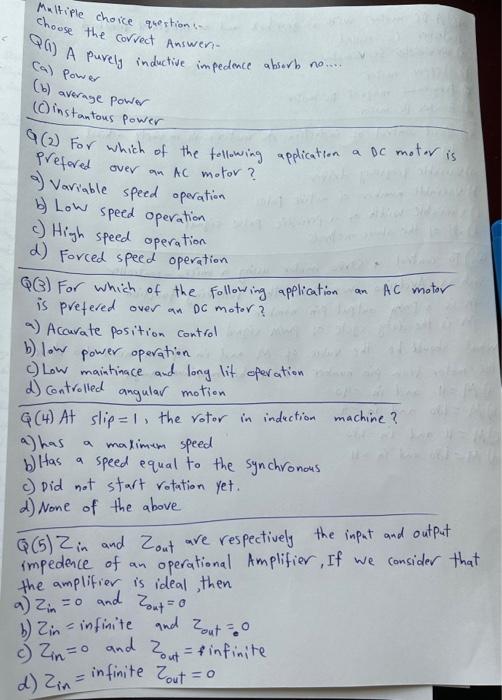 Multiple choice question:-
choose the correct Answer:-
Q(1) A purely inductive impedence absorb no....
(a) Power
(b) average power
(c) instantous power
Q(2) For which of the following application a DC motor is
prefored over an AC motor?
a) Variable speed operation
b) Low speed operation
c) High speed operation
d) Forced speed operation
Q(3) For which of the following application an AC motor
is prefered over an DC motor?
a) Accurate position control
b) low power operation
c) Low maintinace and long lif operation
d) controlled angular motion
Q(4) At slip=1, the rotor in indection machine?
a) has a maximum speed
b) Has a speed equal to the synchronous
c) Did not start rotation yet.
d) None of the above
Q(5) Zin and Zout are respectively the input and output
impedence of an operational Amplifier, If we consider that
the amplifier is ideal, then
a) Zin=0 and Zout=0
b) Zin = infinite and Zout = 0
c) Zin=0 and Zout = infinite
d) Zin = infinite Zout = 0